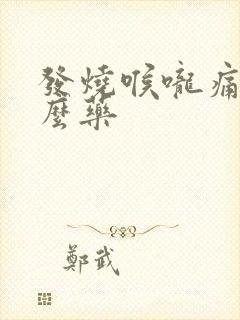 發燒喉嚨痛
麼藥
鄭武